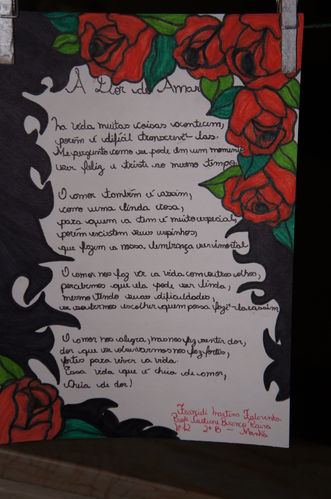 A Dor de Amar
Na vida muitas coisas acontecem,
porém é difícil transcrevê-las.
Me pergunto como se pode em um momento
ser feliz e triste ao mesmo tempo.
O amor também é assim,
como uma linda rosa,
para quem a tem é muito especial,
porém existem seus espinhos,
que fazem a nossa lembrança ser imortal.
O amor nos faz ver a vida com outros olhos,
percebemos que ela pode ser linda,
mesmo tendo suas dificuldades,
se soubermos escolher quem possa fazê-la assim
O amor nos alegra, mas nos faz sentir dor,
dor que se observarmos nos faz fortes,
fortes para viver a vida.
Essa vida que é cheia de amor,
Cheia de dor!
Martins
Profe
2º B — Manhã